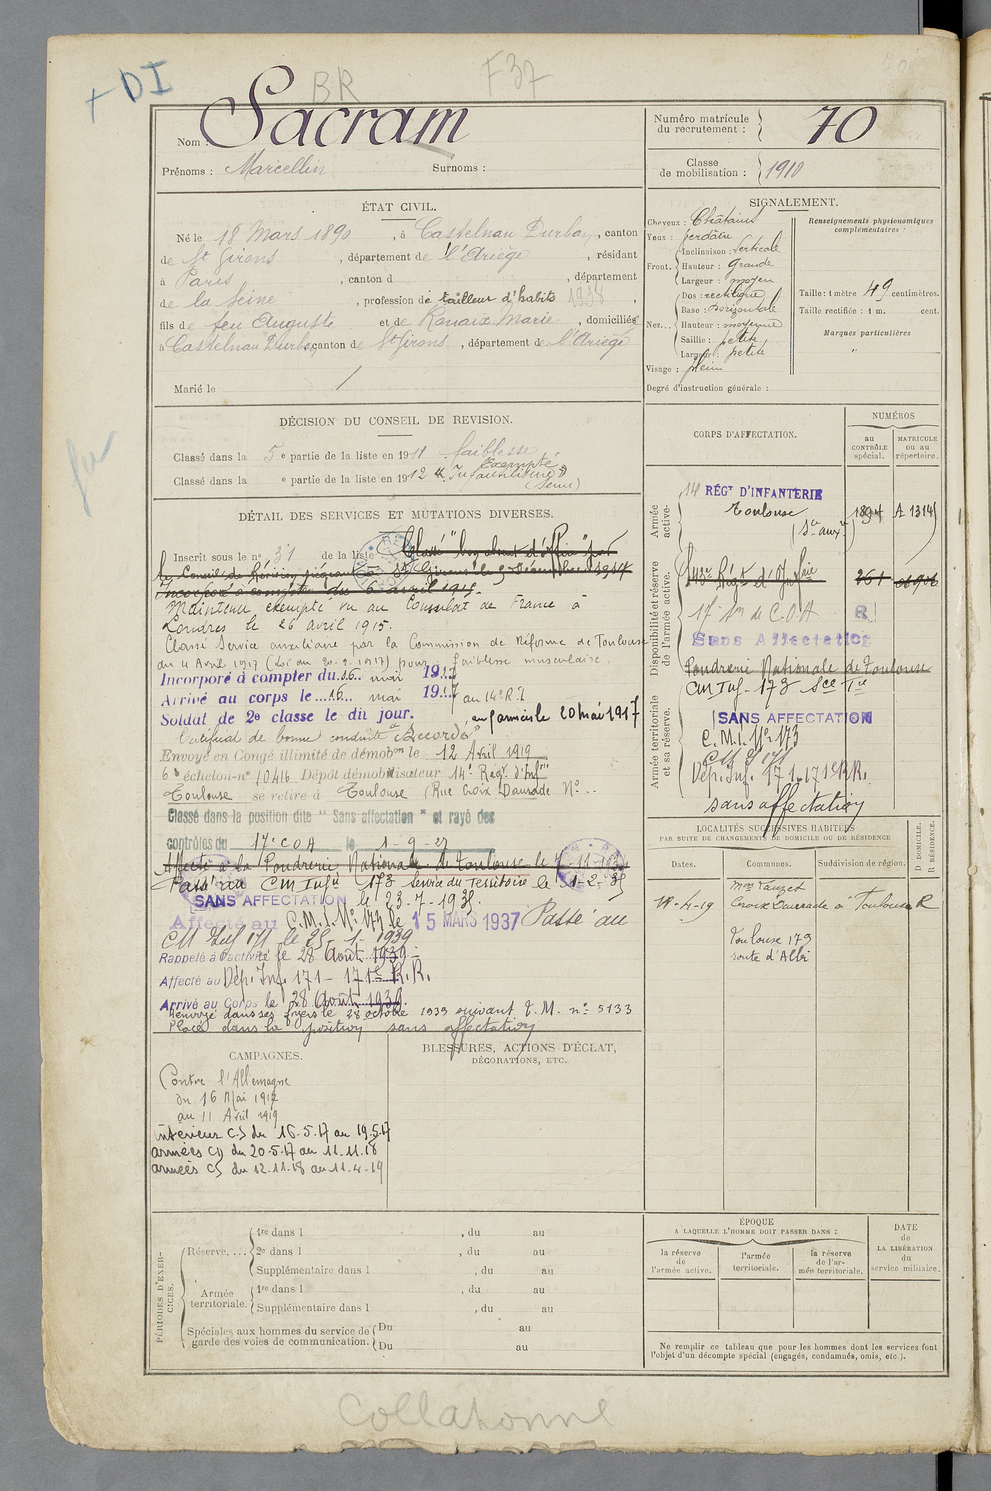 + DI
BR
F37
Nom : Sacram
Prénoms : Marcellin Surnoms :
Numéro matricule du recrutement : 70
Classe de mobilisation : 1910
ÉTAT CIVIL.
Né le 18 Mars 1890, à Castelnau Durban, canton
de St Girons, département de l'Ariège, résidant
à Paris, canton d , département
de la Seine, profession de tailleur d'habits 1938,
fils de feu Auguste et de Ronaix Marie, domiciliés
à Castelnau Durban canton de St Girons, département de l'Ariège
Marié le /
SIGNALEMENT.
Cheveux : Châtains
Yeux : verdâtre
Front. Inclinaison : Verticale
Hauteur : Grande
Largeur : moyen
Nez... Dos : rectiligne
Base : Horizontale
Hauteur : moyenne
Saillie : petite
Largeur : petite
Visage : plein
Renseignements physionomiques complémentaires :
Taille : 1 mètre 49 centimètres.
Taille rectifiée : 1 m. cent.
Marques particulières
"
Degré d'instruction générale :
DÉCISION DU CONSEIL DE REVISION.
Classé dans la 5e partie de la liste en 1911 faiblesse
Classé dans la e partie de la liste en 1912 Exempté
(Seine)
DÉTAIL DES SERVICES ET MUTATIONS DIVERSES.
Inscrit sous le no 31 de la liste Classé "bon absent d'office" par
le Conseil de Révision siégeant à St Girons le 9 Décembre 1914
Incorporé à compter du 6 avril 1915.
Maintenu exempté vu au Consulat de France à
Londres le 26 avril 1915.
Classé Service auxiliaire par la Commission de Réforme de Toulouse
du 4 Avril 1917 (Loi du 20.2.1917) pour faiblesse musculaire.
Incorporé à compter du 16 mai 1917
Arrivé au corps le 16 mai 1917 au 14e R.I.
Soldat de 2e classe le dit jour. aux armées le 20 mai 1917
Certificat de bonne conduite "Accordé"
Envoyé en Congé illimité de démobon le 12 Avril 1919
6e échelon no 10416 Dépôt démobilisateur 14e Regt d'Infrie
Toulouse se retire à Toulouse (Rue Croix Daurade No ..
Classé dans la position dite "Sans affectation" et rayé des
contrôles du 17e COA le 1-9-27
Affecté à la Poudrerie Nationale de Toulouse le
Passé au CM Infie 173 Service du Territoire le 1-2-35
SANS AFFECTATION le 23-7-1935.
Affecté au C.M.I. No 173 le 15 MARS 1937 Passé au
CM Inf 171 le 25-1-1939
Rappelé à l'activité le 28 Août 1939
Affecté au Dép. Inf. 171 - 171e R.R.
Arrivé au Corps le 28 Août 1939.
Renvoyé dans ses foyers le 28 octobre 1939 suivant T.M. no 5133
Placé dans la position sans affectation
CORPS D'AFFECTATION.
NUMÉROS
au CONTRÔLE spécial.
MATRICULE ou au répertoire.
Armée active.
14e RÉGt D'INFANTERIE
Toulouse
(Sce auxre)
A 1314
Disponibilité et réserve de l'armée active.
143e Régt d'Infrie
261
17e Son de C.O.A
R
Sans Affectation
Poudrerie Nationale de Toulouse
CM Inf. 173 Sce Tre
Armée territoriale et sa réserve.
SANS AFFECTATION
C.M.I. No 173
CM Inf 171
Dép. Inf. 171. 171e RR.
sans affectation
LOCALITÉS SUCCESSIVES HABITÉES
PAR SUITE DE CHANGEMENTS DE DOMICILE OU DE RÉSIDENCE
Dates. Communes. Subdivision de région. D. DOMICILE. R. RÉSIDENCE.
12-4-19 Croix Daurade à Toulouse R
Toulouse 179
route d'Albi
CAMPAGNES.
Contre l'Allemagne
du 16 Mai 1917
au 11 Avril 1919
intérieur CS du 16-5-17 au 19.5.17
armées CD du 20-5-17 au 11.11.18
armées CS du 12.11.18 au 11-4-19
BLESSURES, ACTIONS D'ÉCLAT,
DÉCORATIONS, ETC.
PÉRIODES D'EXERCICES.
Réserve.... 1re dans l , du au
2e dans l , du au
Supplémentaire dans l , du au
Armée territoriale. 1re dans l , du au
Supplémentaire dans l , du au
Spéciales aux hommes du service de garde des voies de communication. Du au
Du au
ÉPOQUE
A LAQUELLE L'HOMME DOIT PASSER DANS :
la réserve de l'armée active.
l'armée territoriale.
la réserve de l'armée territoriale.
DATE DE LA LIBÉRATION du service militaire.
Ne remplir ce tableau que pour les hommes dont les services font
l'objet d'un décompte spécial (engagés, condamnés, omis, etc.).
Collationné